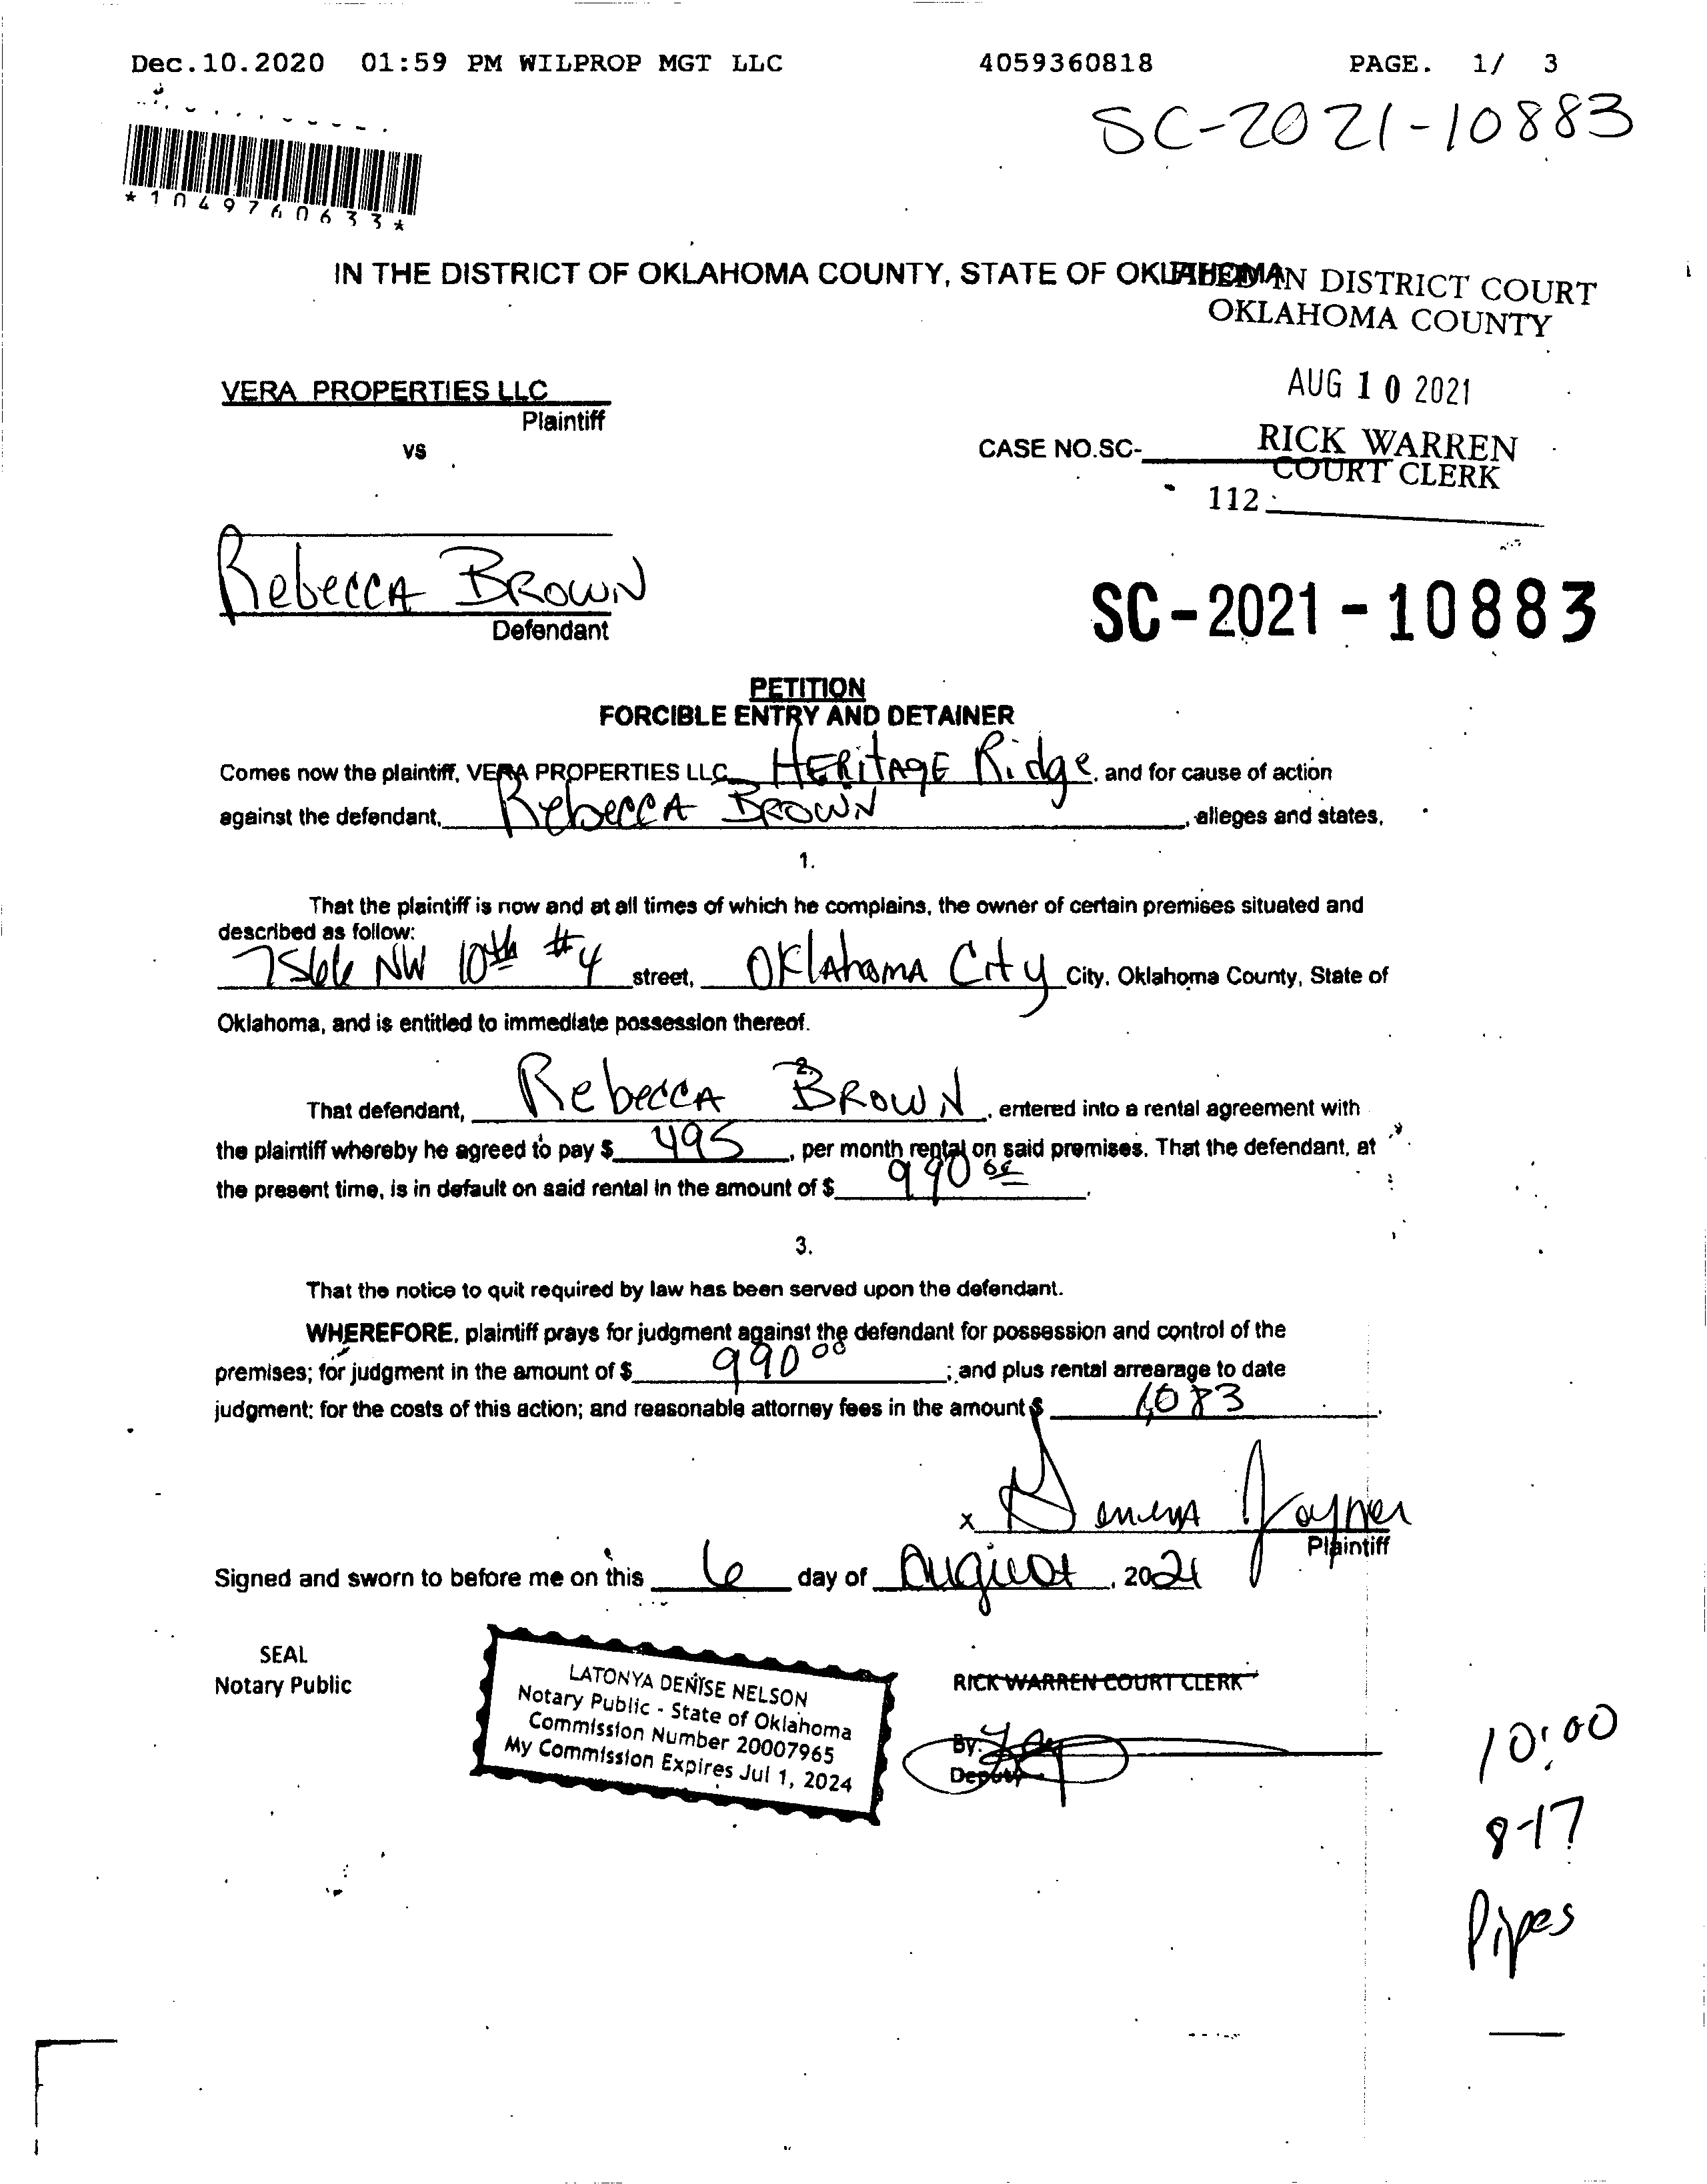 Dec.10.2020 01:59 PM WILPROP MGT LLC 4059360818 PAGE. 1/ 3
SC-2021-10883
*1049760633*
IN THE DISTRICT OF OKLAHOMA COUNTY, STATE OF OKLAHOMA
FILED IN DISTRICT COURT
OKLAHOMA COUNTY
AUG 10 2021
VERA PROPERTIES LLC
Plaintiff
vs
CASE NO.SC-
RICK WARREN
COURT CLERK
112
Rebecca BROWN
Defendant
SC-2021-10883
PETITION
FORCIBLE ENTRY AND DETAINER
Comes now the plaintiff, VERA PROPERTIES LLC HERITAGE Ridge, and for cause of action
against the defendant, Rebecca BROWN, alleges and states,
1.
That the plaintiff is now and at all times of which he complains, the owner of certain premises situated and
described as follow:
7566 NW 10th #4 street, Oklahoma City City, Oklahoma County, State of
Oklahoma, and is entitled to immediate possession thereof.
2.
That defendant, Rebecca BROWN, entered into a rental agreement with
the plaintiff whereby he agreed to pay $ 495, per month rental on said premises. That the defendant, at
the present time, is in default on said rental in the amount of $ 990 00.
3.
That the notice to quit required by law has been served upon the defendant.
WHEREFORE, plaintiff prays for judgment against the defendant for possession and control of the
premises; for judgment in the amount of $ 990 00; and plus rental arrearage to date
judgment; for the costs of this action; and reasonable attorney fees in the amount $ 1,083.
x
Joyner
Plaintiff
Signed and sworn to before me on this 6 day of August, 2021
SEAL
Notary Public
LATONYA DENISE NELSON
Notary Public - State of Oklahoma
Commission Number 20007965
My Commission Expires Jul 1, 2024
RICK WARREN COURT CLERK
By:
Deputy
10:00
8-17
Pipes